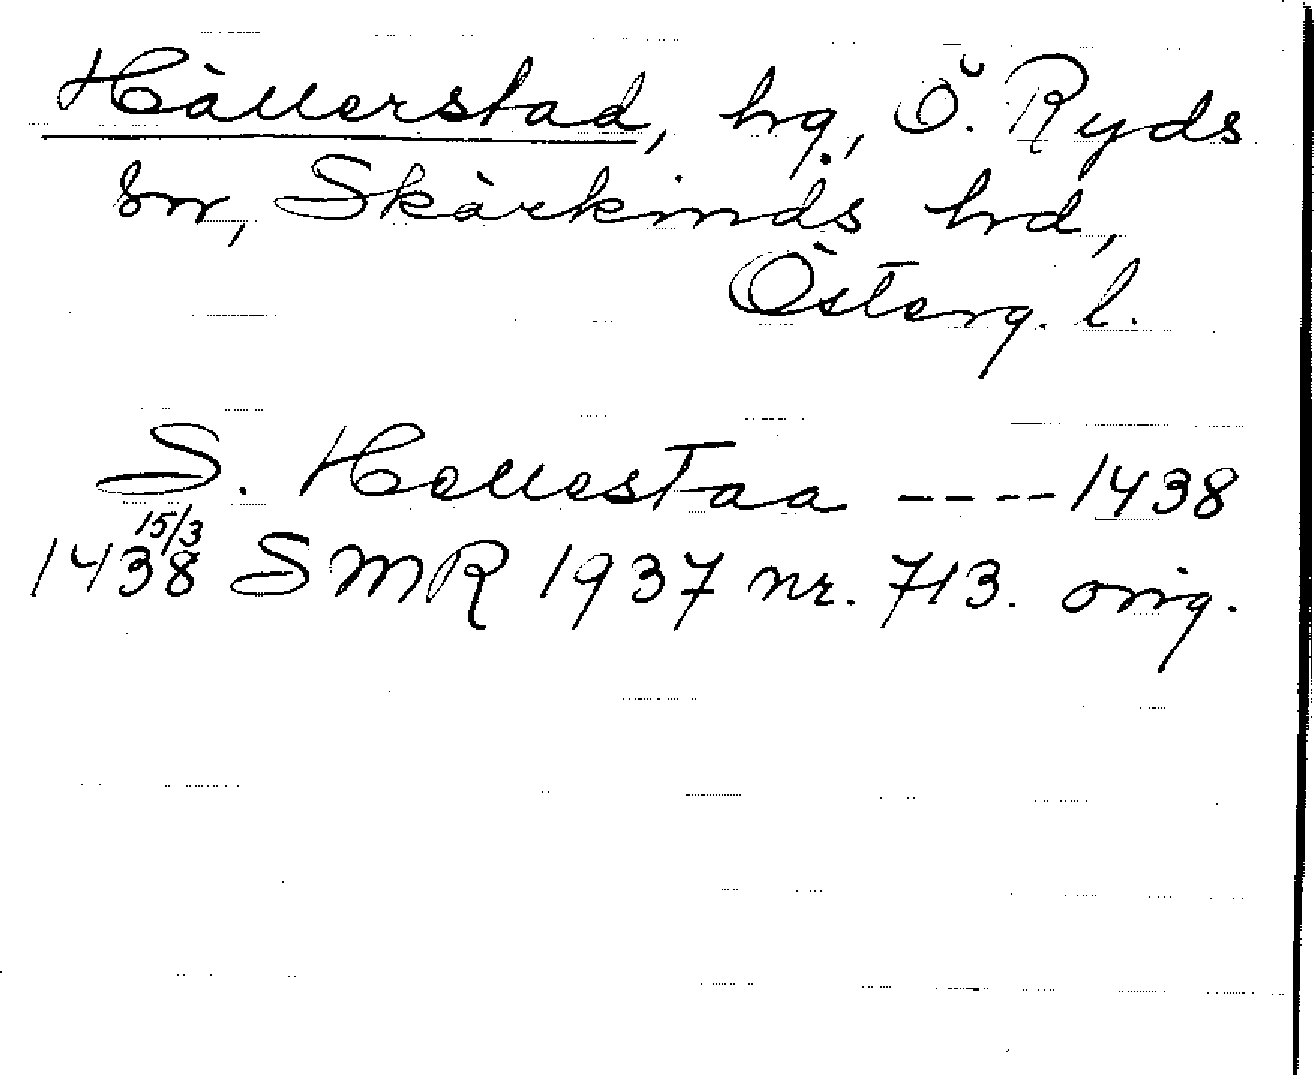 Hällerstad, hg., Ö. Ryds
sn, Skärkinds hd,
Österg. l.
S. Hellestaa ---- 1438
1438 15/3 SMR 1937 nr. 713. orig.